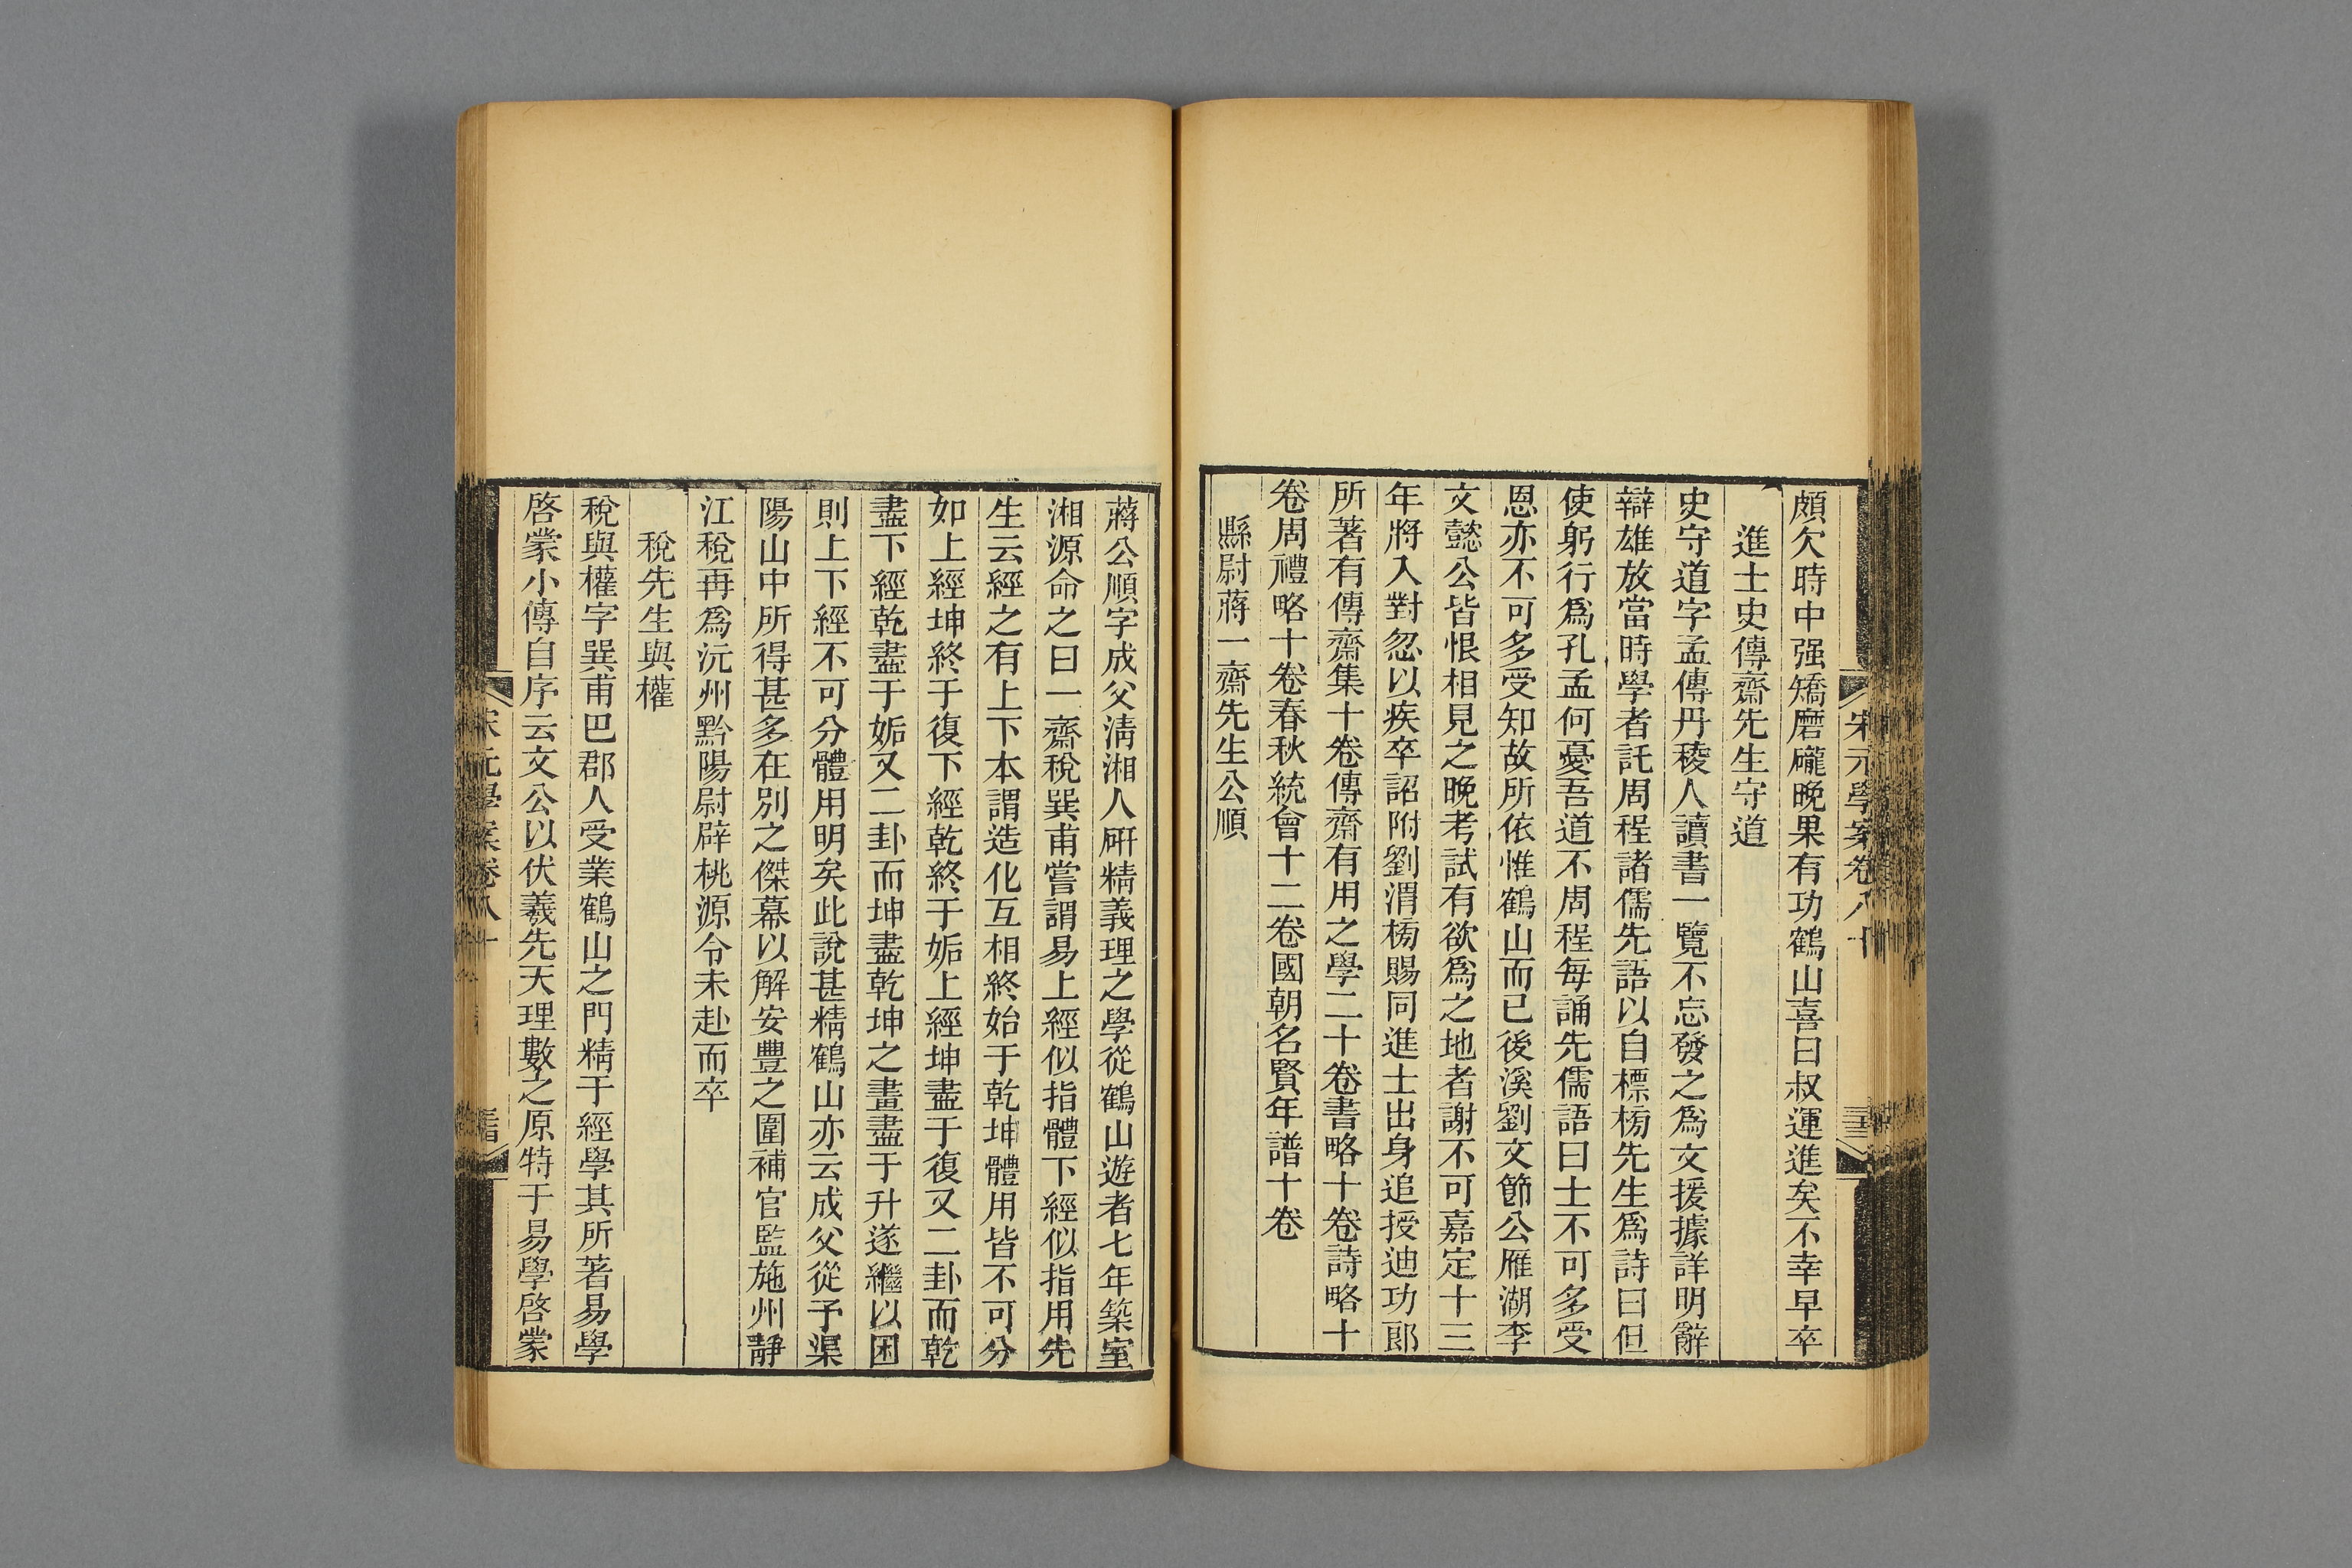 頗欠時中强矯磨礲晚果有功鶴山喜曰叔運進矣不幸早卒
進士史傳齋先生守道
史守道字孟傳丹稜人讀書一覽不忘發之爲文援據詳明辭
辯雄放當時學者託周程諸儒先語以自標榜先生爲詩曰但
使躬行爲孔孟何憂吾道不周程每誦先儒語曰士不可多受
恩亦不可多受知故所依惟鶴山而已後溪劉文節公雁湖李
文懿公皆恨相見之晚考試有欲爲之地者謝不可嘉定十三
年將入對忽以疾卒詔附劉渭榜賜同進士出身追授迪功郞
所著有傳齋集十卷傳齋有用之學二十卷書略十卷詩略十
卷周禮略十卷春秋統會十二卷國朝名賢年譜十卷
縣尉蔣一齋先生公順
宋元學案卷八十
蔣公順字成父淸湘人硏精義理之學從鶴山遊者七年築室
湘源命之曰一齋稅巽甫嘗謂易上經似指體下經似指用先
生云經之有上下本謂造化互相終始于乾坤體用皆不可分
如上經坤終于復下經乾終于姤上經坤盡于復又二卦而乾
盡下經乾盡于姤又二卦而坤盡乾坤之畫盡于升遂繼以困
則上下經不可分體用明矣此說甚精鶴山亦云成父從予渠
陽山中所得甚多在別之傑幕以解安豐之圍補官監施州靜
江稅再爲沅州黔陽尉辟桃源令未赴而卒
稅先生與權
稅與權字巽甫巴郡人受業鶴山之門精于經學其所著易學
啓蒙小傳自序云文公以伏羲先天理數之原特于易學啓蒙
宋元學案卷八十